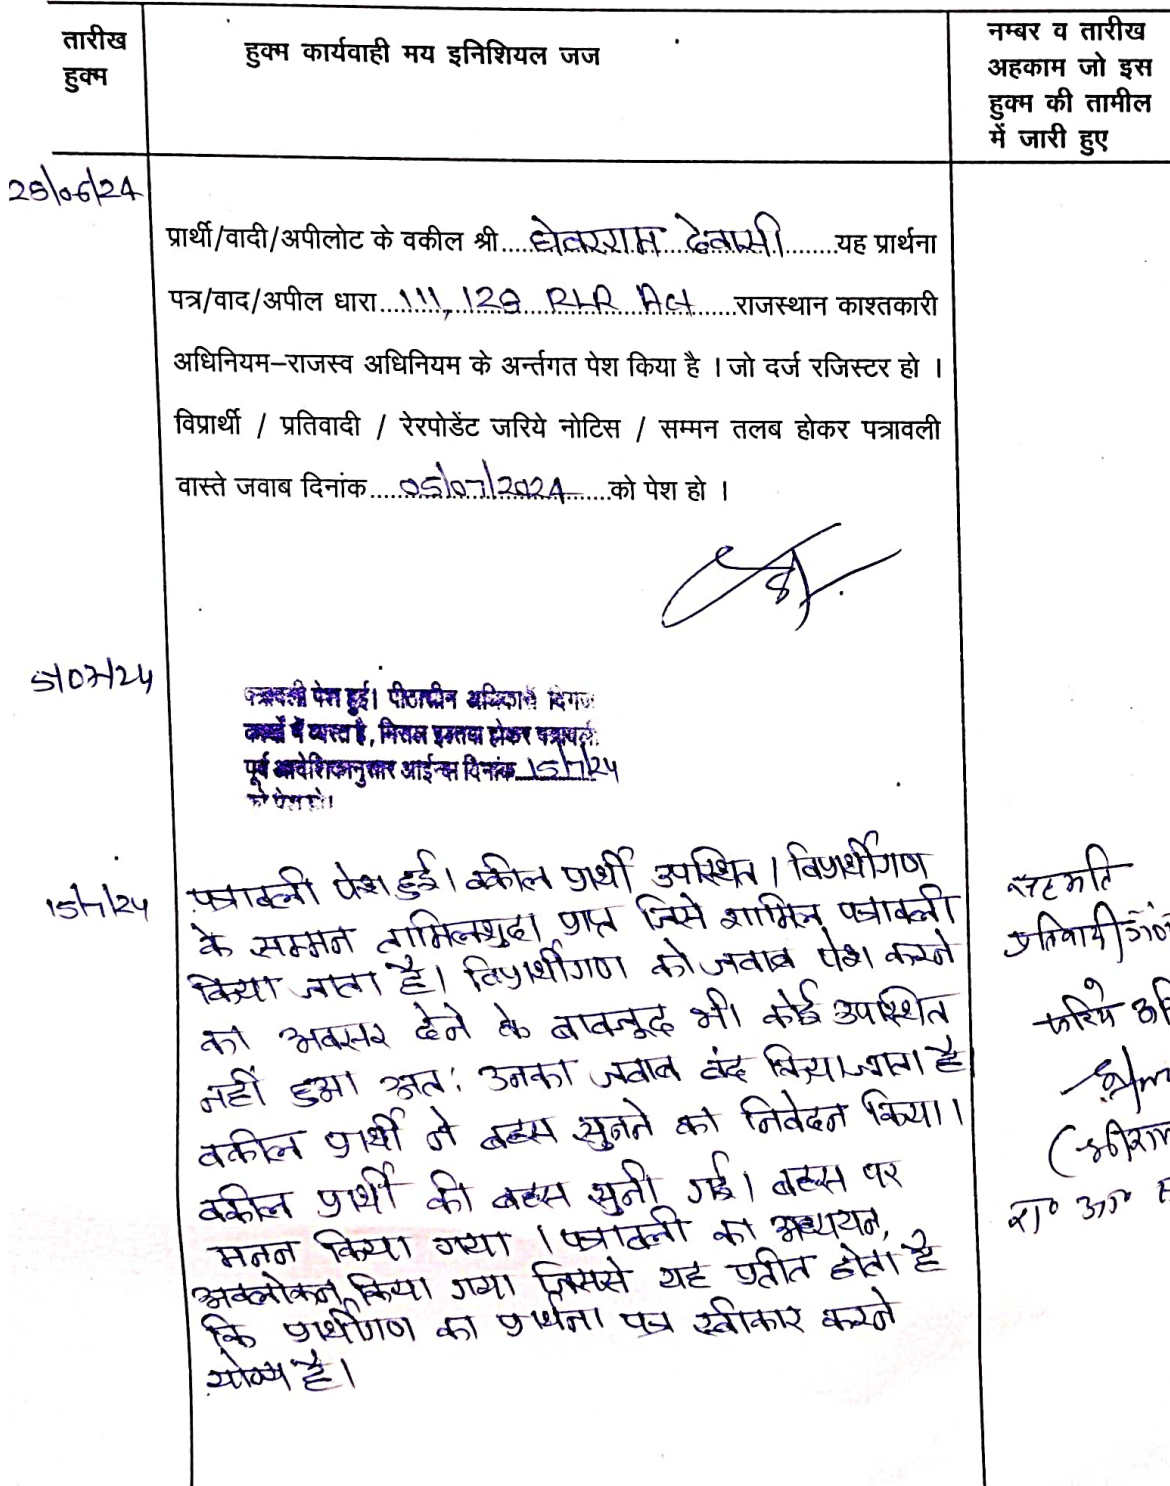 तारीख
हुक्म
हुक्म कार्यवाही मय इनिशियल जज
नम्बर व तारीख
अहकाम जो इस
हुक्म की तामील
में जारी हुए
28/06/24
प्रार्थी/वादी/अपीलोट के वकील श्री....घेवरराम देवासी.......यह प्रार्थना
पत्र/वाद/अपील धारा...111, 128 RLR Act.....राजस्थान काश्तकारी
अधिनियम–राजस्व अधिनियम के अर्न्तगत पेश किया है । जो दर्ज रजिस्टर हो ।
विप्रार्थी / प्रतिवादी / रेरपोडेंट जरिये नोटिस / सम्मन तलब होकर पत्रावली
वास्ते जवाब दिनांक....05/07/2024.....को पेश हो ।
5/07/24
पत्रावली पेश हुई। पीठासीन अधिकारी
कार्यो में व्यस्त है, मिसल इल्तवा होकर पत्रावली
पूर्व आदेशिकानुसार आईन्दा दिनांक 15/7/24
को पेश हो।
15/7/24
पत्रावली पेश हुई। वकील प्रार्थी उपस्थित। विप्रार्थीगण
के सम्मन तामिलशुदा प्राप्त जिसे शामिल पत्रावली
किया जाता है। विप्रार्थीगण को जवाब पेश करने
का अवसर देने के बावजुद भी कोई उपस्थित
नहीं हुआ अतः उनका जवाब बंद किया जाता है
वकील प्रार्थी ने बहस सुनने का निवेदन किया।
वकील प्रार्थी की बहस सुनी गई। बहस पर
मनन किया गया। पत्रावली का अध्ययन,
अवलोकन किया गया जिससे यह प्रतीत होता है
कि प्रार्थीगण का प्रार्थना पत्र स्वीकार करने
योग्य है।
सहमति
प्रतिवादी
जरिये
रा० अ०